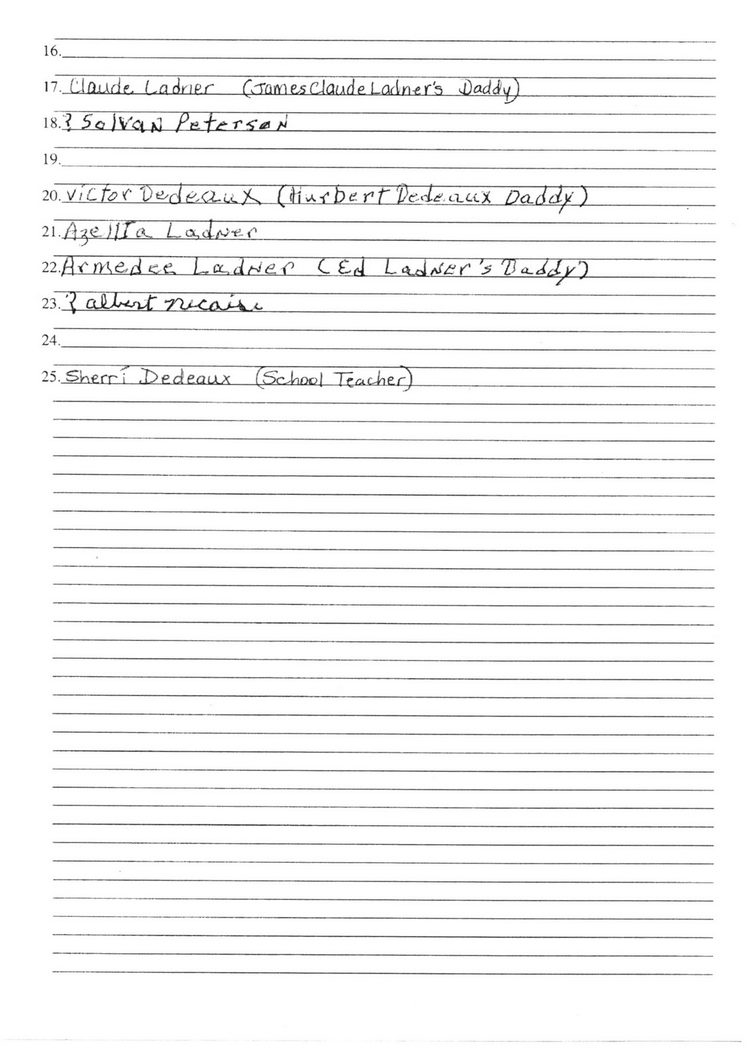 16.
17. Claude Ladner (James Claude Ladner's Daddy)
18. ? Solvan Peterson
19.
20. Victor Dedeaux (Hurbert Dedeaux Daddy)
21. Azellia Ladner
22. Armedee Ladner (Ed Ladner's Daddy)
23. ? albert necaise
24.
25. Sherri Dedeaux (School Teacher)